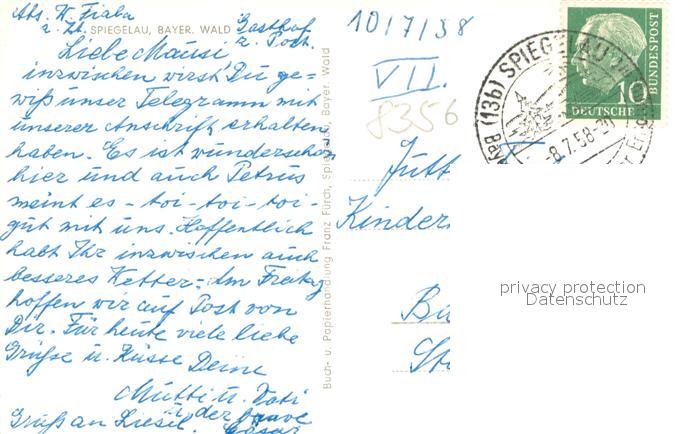 Abs. W. Fiaba
z. Zt. SPIEGELAU, BAYER. WALD Gasthof
z. Post.
Liebe Mausi,
inzwischen wirst Du ge-
wiß unser Telegramm mit
unserer Anschrift erhalten
haben. Es ist wunderschön
hier und auch Petrus
meint es - toi - toi - toi -
gut mit uns. Hoffentlich
habt Ihr inzwischen auch
besseres Wetter. Am Freitag
hoffen wir auf Post von
Dir. Für heute viele liebe
Grüße u. Küsse Deine
Mutti u. Vati
u. der brave
Gruß an Liesel. Cäsar
Buch- u. Papierhandlung Franz Fürch, Spiegelau, Bayer. Wald
10/7/58
VII.
8356
(13b) SPIEGELAU
-8.7.58-
10
DEUTSCHE
BUNDESPOST
Jutt
Kinder
Bü
St
privacy protection
Datenschutz